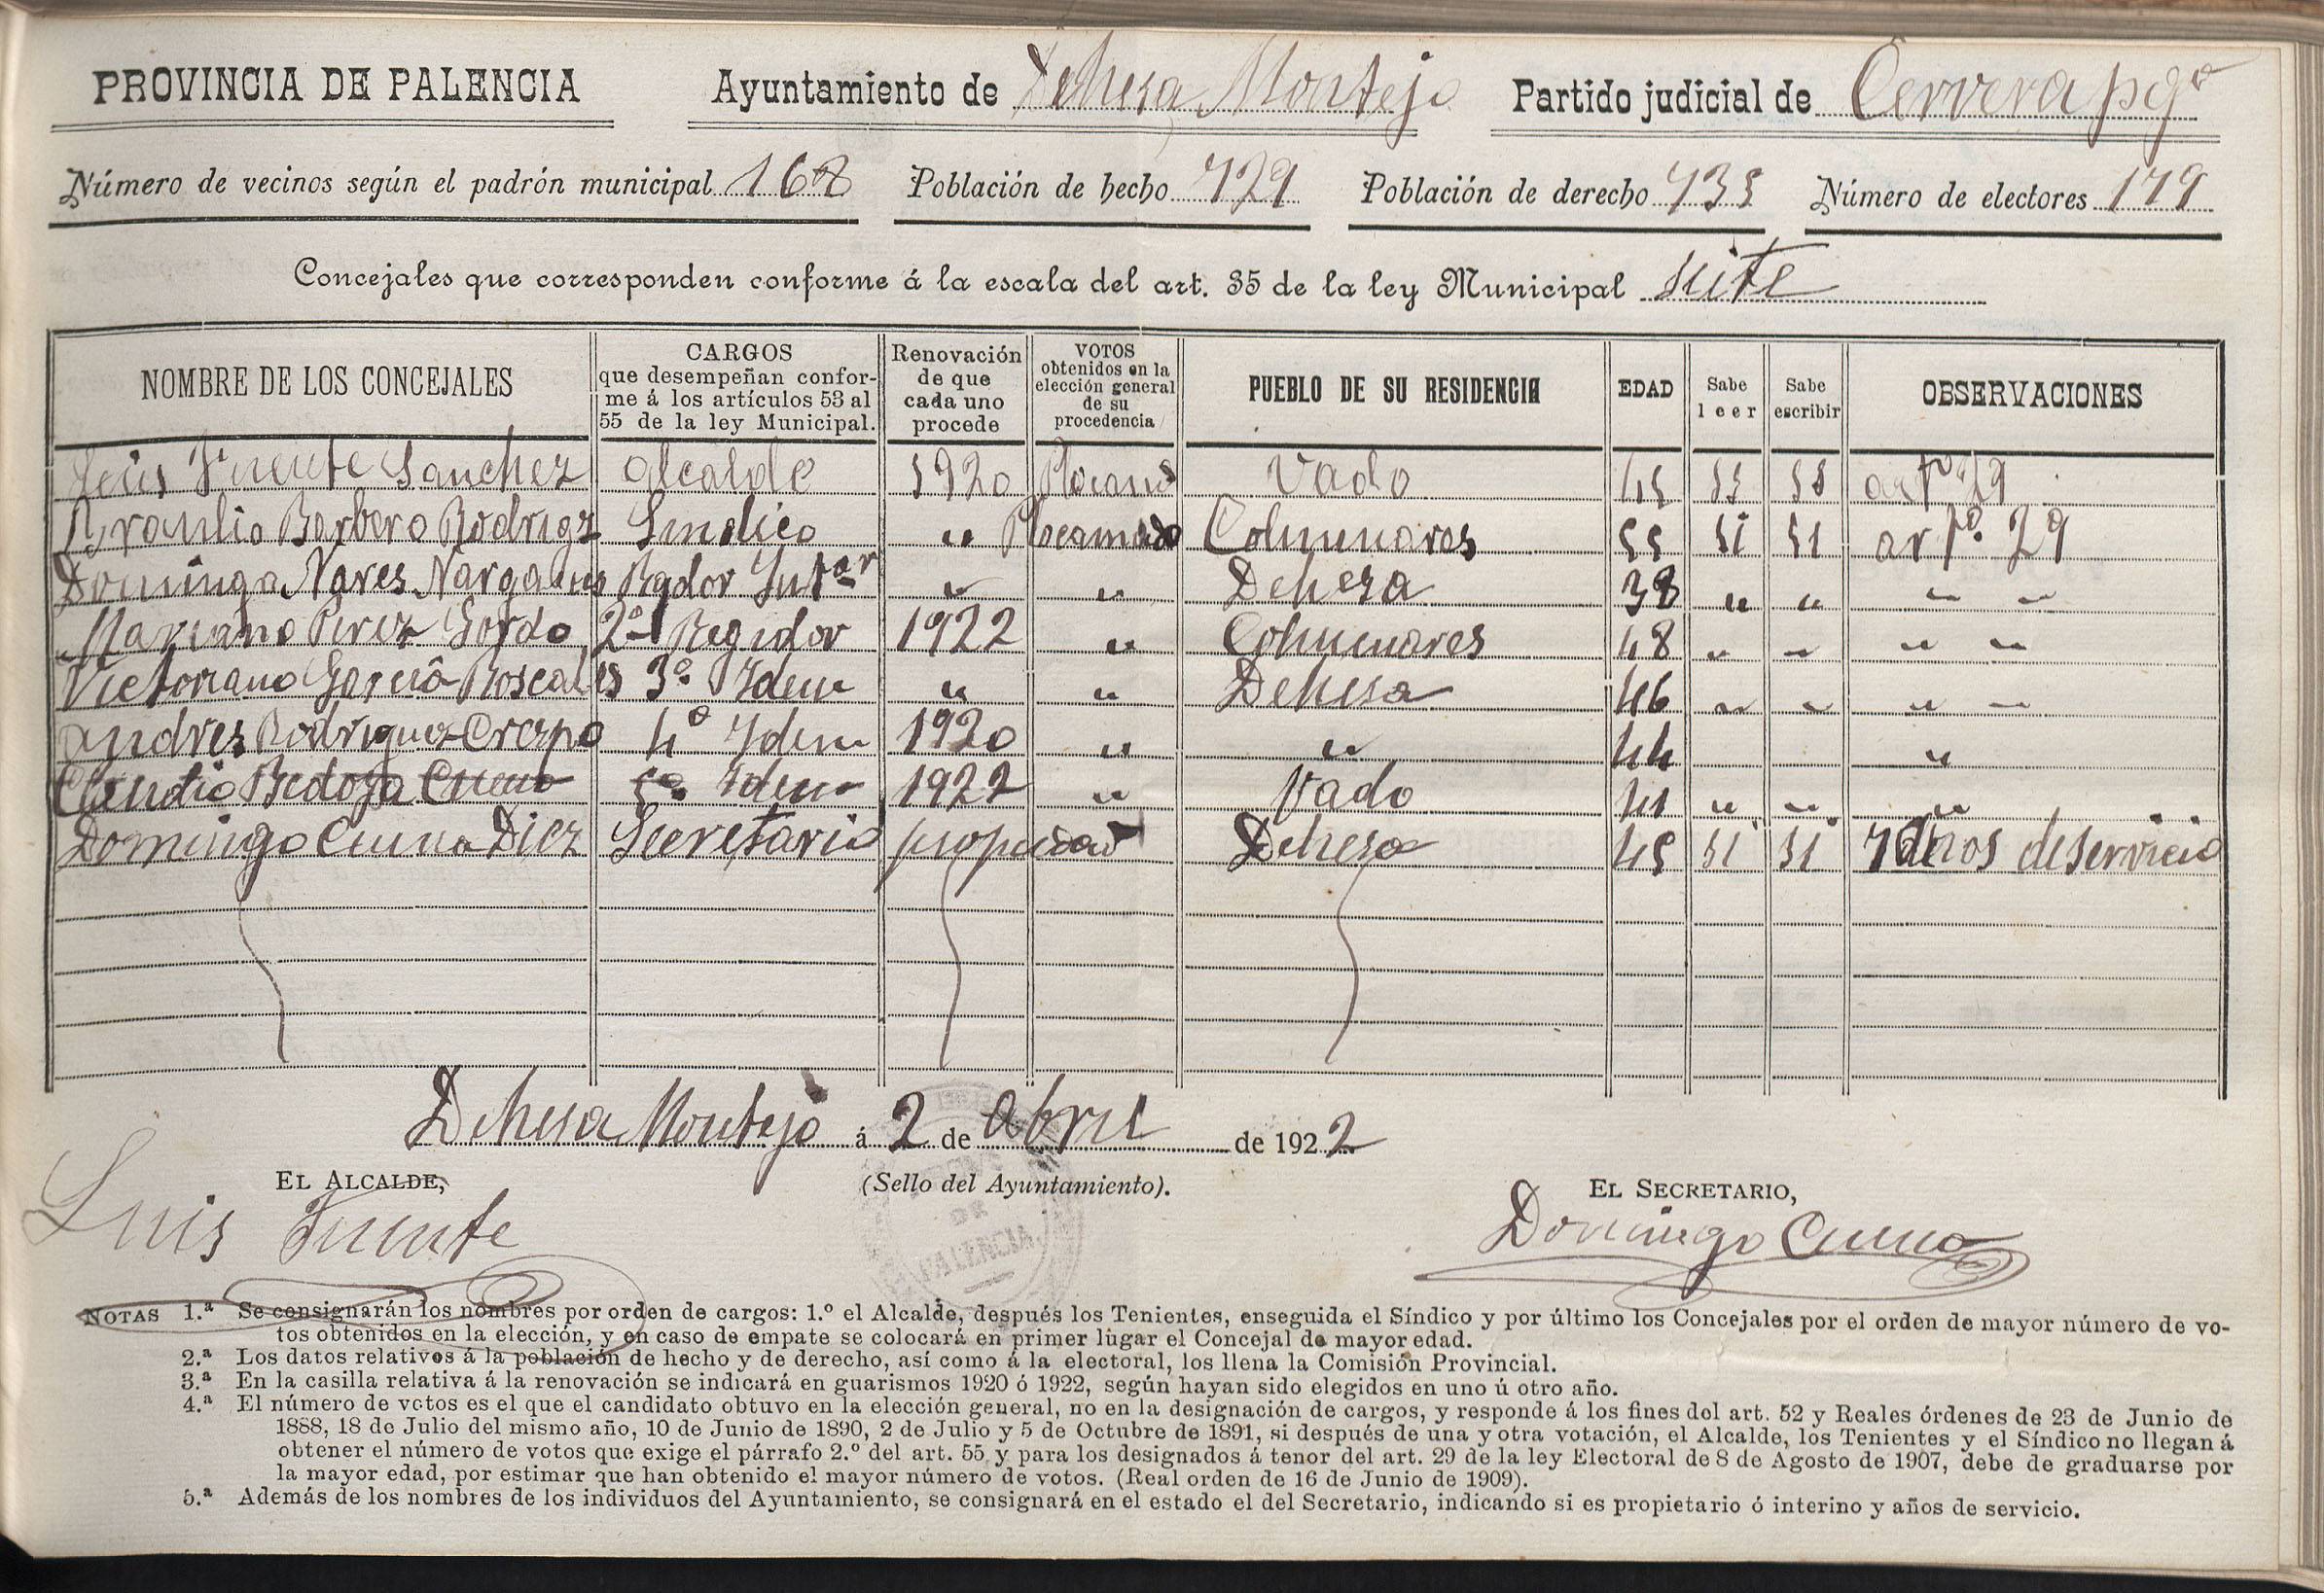 PROVINCIA DE PALENCIA Ayuntamiento de Dehesa Montejo Partido judicial de Cervera pgª
Número de vecinos según el padrón municipal 168 Población de hecho 729 Población de derecho 735 Número de electores 179
Concejales que corresponden conforme á la escala del art. 35 de la ley Municipal siete
NOMBRE DE LOS CONCEJALES
CARGOS
que desempeñan confor-
me á los artículos 53 al
55 de la ley Municipal.
Renovación
de que
cada uno
procede
VOTOS
obtenidos en la
elección general
de su
procedencia
PUEBLO DE SU RESIDENCIA
EDAD
Sabe
leer
Sabe
escribir
OBSERVACIONES
Luis Fuente Sanchez Alcalde 1920 Vado 45 si si artº 29
Braulio Barbero Rodrigz Sindico " Colmenares 55 si si artº. 29
Domingo Nares " " Dehesa 38 " " " "
Mariano Perez Gordo 2º Regidor 1922 " Colmenares 48 " " " "
Victoriano Garcia Roscales 3º Idem " " Dehesa 46 " " " "
Andres Rodriguez Crespo 4º Idem 1920 " " 44 "
Claudio Bedoya Cuena 5º Idem 1922 " Vado 41 " " "
Domingo Cuena Diez Secretario propiedad Dehesa 45 si si años de servicio
Dehesa Montejo á 2 de Abril de 1922
EL ALCALDE, (Sello del Ayuntamiento). EL SECRETARIO,
Luis Fuente
Domingo Cuena
DE
PALENCIA
NOTAS 1.ª Se consignarán los nombres por orden de cargos: 1.º el Alcalde, después los Tenientes, enseguida el Síndico y por último los Concejales por el orden de mayor número de vo-
tos obtenidos en la elección, y en caso de empate se colocará en primer lugar el Concejal de mayor edad.
2.ª Los datos relativos á la población de hecho y de derecho, así como á la electoral, los llena la Comisión Provincial.
3.ª En la casilla relativa á la renovación se indicará en guarismos 1920 ó 1922, según hayan sido elegidos en uno ú otro año.
4.ª El número de votos es el que el candidato obtuvo en la elección general, no en la designación de cargos, y responde á los fines del art. 52 y Reales órdenes de 23 de Junio de
1888, 18 de Julio del mismo año, 10 de Junio de 1890, 2 de Julio y 5 de Octubre de 1891, si después de una y otra votación, el Alcalde, los Tenientes y el Síndico no llegan á
obtener el número de votos que exige el párrafo 2.º del art. 55 y para los designados á tenor del art. 29 de la ley Electoral de 8 de Agosto de 1907, debe de graduarse por
la mayor edad, por estimar que han obtenido el mayor número de votos. (Real orden de 16 de Junio de 1909).
5.ª Además de los nombres de los individuos del Ayuntamiento, se consignará en el estado el del Secretario, indicando si es propietario ó interino y años de servicio.